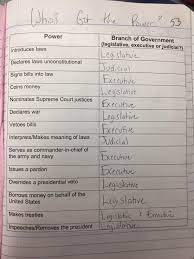 Who's Got the Power? 53
Power
Branch of Government
(legislative, executive or judicial?)
Introduces laws
Legislative
Declares laws unconstitutional
Judicial
Signs bills into law
Executive
Coins money
Legislative
Nominates Supreme Court justices
Executive
Declares war
Legislative
Vetoes bills
Executive
Interprets/Makes meaning of laws
Judicial
Serves as commander-in-chief of
the army and navy
Executive
Issues a pardon
Executive
Overrides a presidential veto
Legislative
Borrows money on behalf of the
United States
Legislative
Makes treaties
Legislative + Executive
Impeaches/Removes the president
Legislative